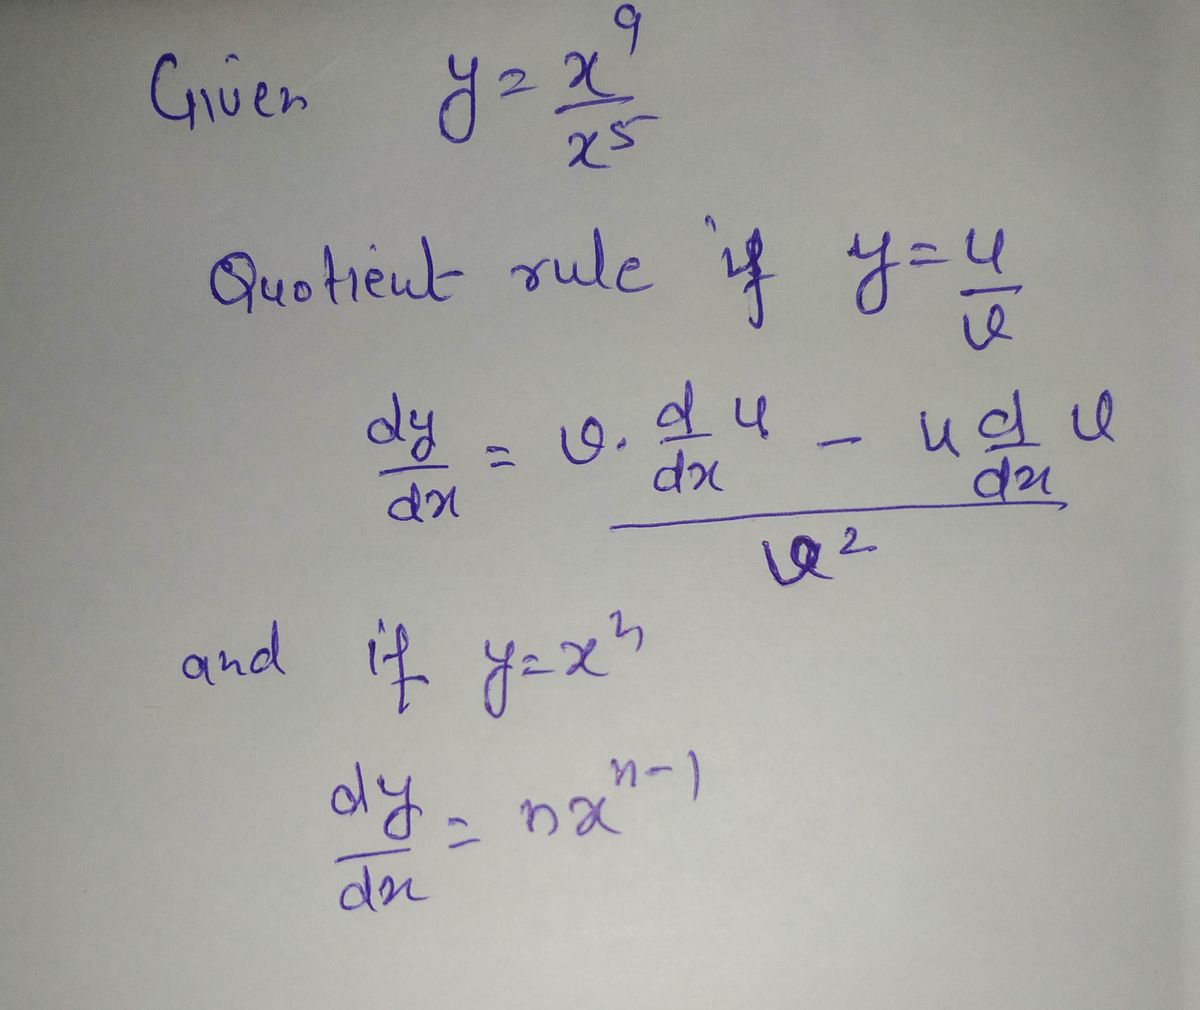 Given y = x^9/x^5
Quotient rule if y = u/v
dy/dx = (v. d/dx u - u d/dx v)/v^2
and if y = x^n
dy/dx = nx^(n-1)